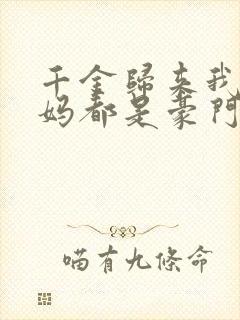 千金歸來我
妈都是豪門
喵有九條命